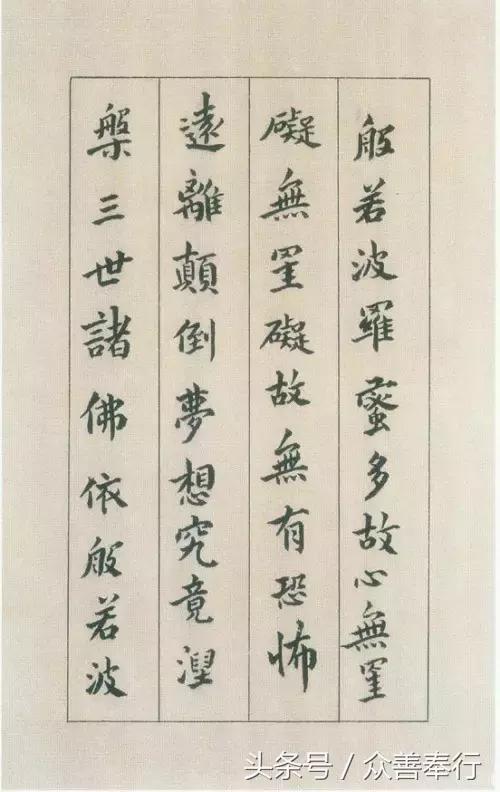 般若波羅蜜多故心無罣
礙無罣礙故無有恐怖
遠離顛倒夢想究竟涅
槃三世諸佛依般若波
头条号 / 众善奉行